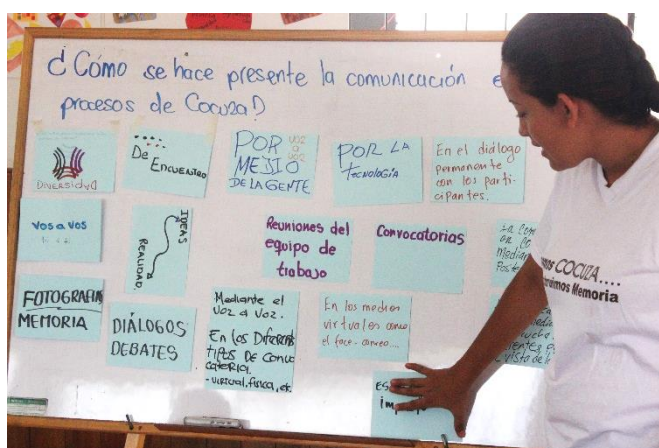 ¿Cómo se hace presente la comunicación
procesos de Cocuza?
DIVERSIDAD
De
ENCUENTRO
POR VOZ
a
VOZ
MEDIO
DE LA GENTE
POR LA
TECNOLOGÍA
En el diálogo
permanente
con los parti-
cipantes.
Vos a vos
IDEAS
REALIDAD.
Reuniones del
equipo de
trabajo
Convocatorias
FOTOGRAFIA
MEMORIA
DIÁLOGOS
DEBATES
Mediante el
Voz a Voz.
En los Diferentes
TIPOS DE convo
catoria.
- virtual, física, etc
En los medios
virtuales como
el face-correo...
COCUZA....
Memoria